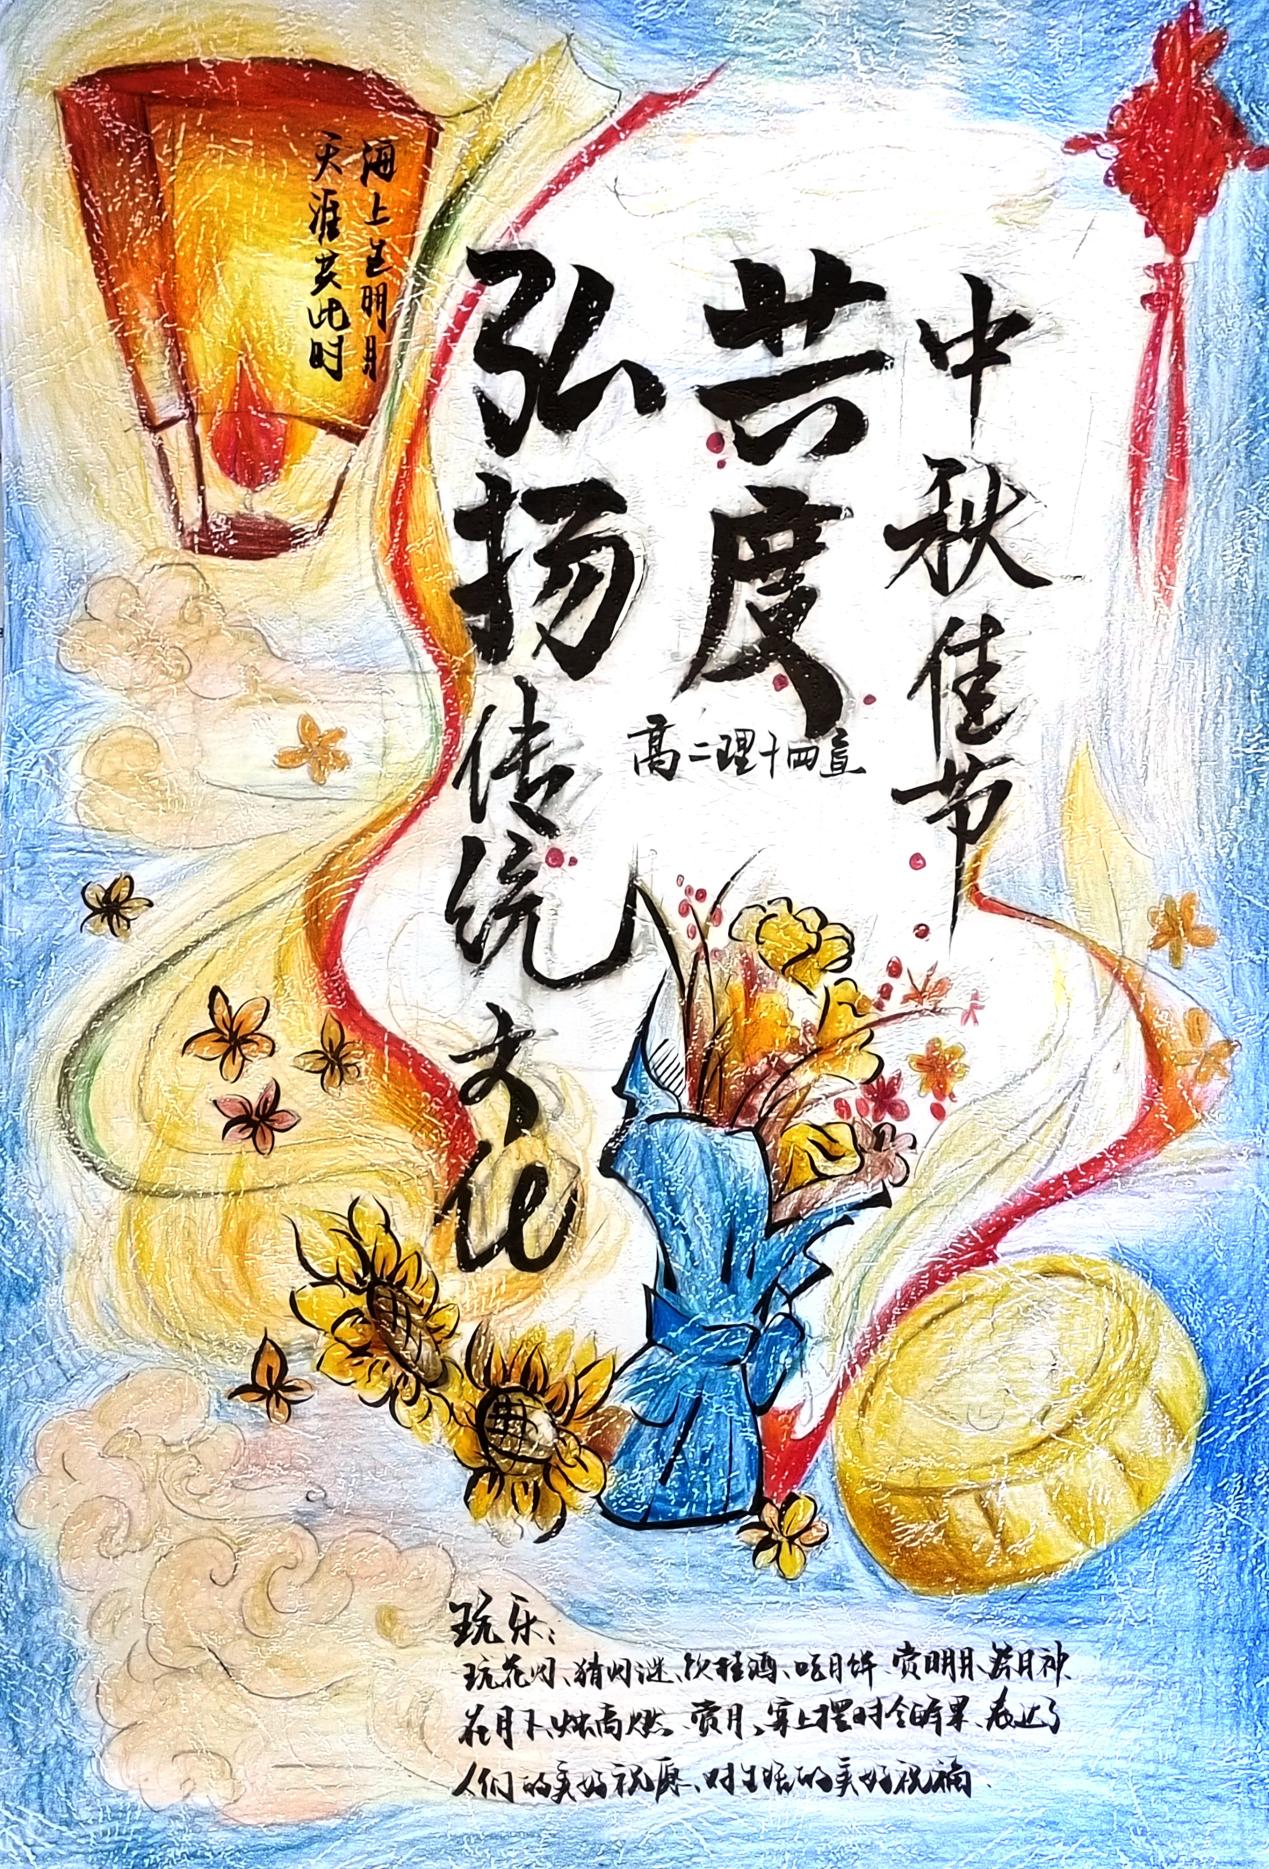 中秋佳节
共度
弘扬传统文化
高二理十四宣
海上生明月
天涯共此时
玩乐：
玩花灯、猜灯谜、饮桂酒、吃月饼、赏明月、祭月神
在月下、烛高燃、赏月、案上摆时令鲜果、表达了
人们的美好祝愿、对生活的美好祝福.